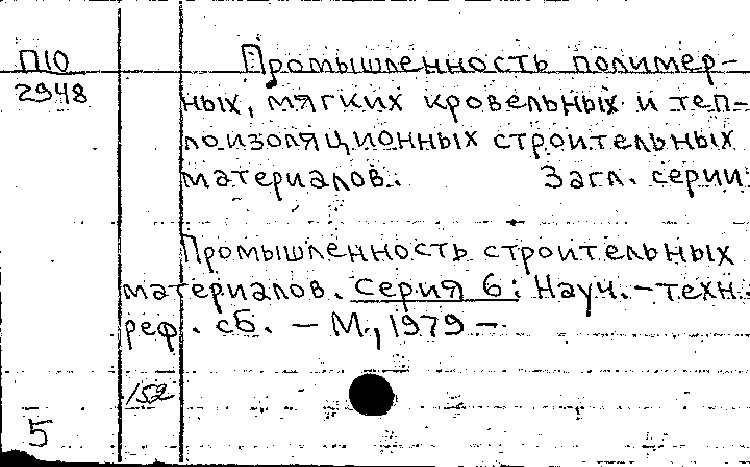 П10
2948
Промышленность полимер-
ных, мягких кровельных и теп-
лоизоляционных строительных
материалов. Загл. серии:
Промышленность строительных
материалов. Серия 6: Науч.-техн.
реф. сб. — М., 1979 —
152
5